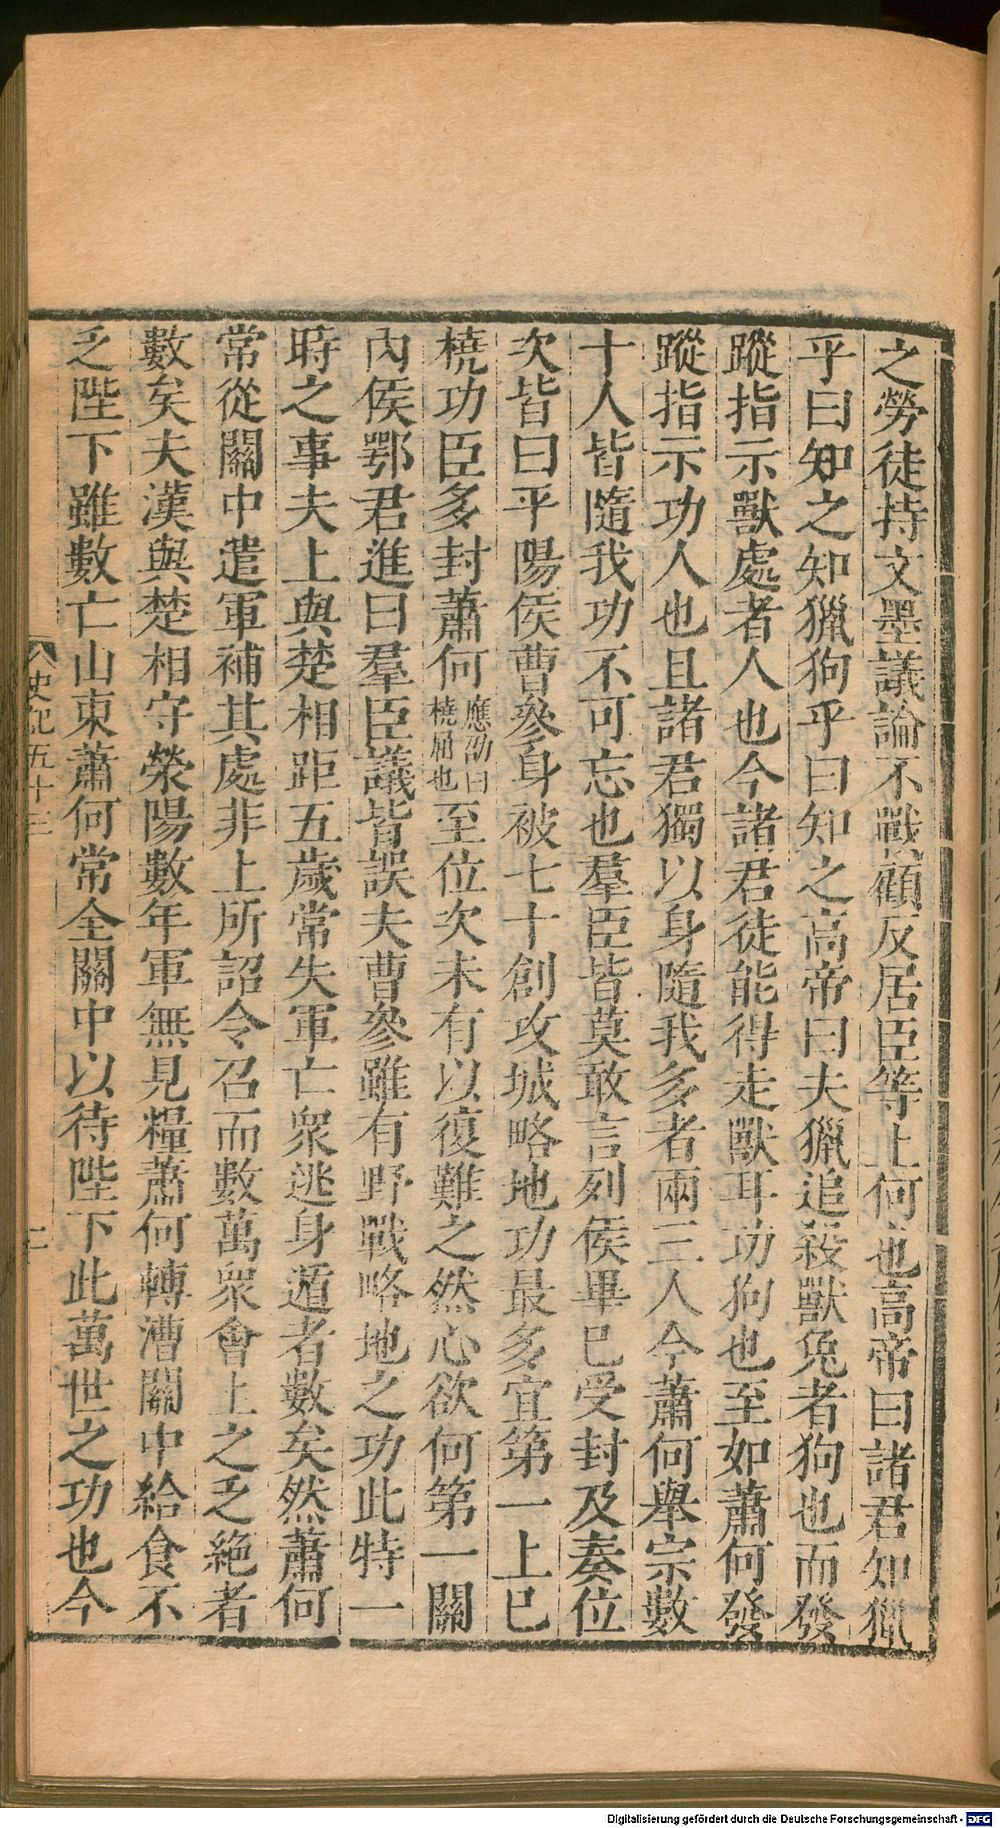 之勞徒持文墨議論不戰顧反居臣等上何也高帝曰諸君知獵
乎曰知之知獵狗乎曰知之高帝曰夫獵追殺獸兔者狗也而發
蹤指示獸處者人也今諸君徒能得走獸耳功狗也至如蕭何發
蹤指示功人也且諸君獨以身隨我多者兩三人今蕭何舉宗數
十人皆隨我功不可忘也羣臣皆莫敢言列侯畢已受封及奏位
次皆曰平陽侯曹參身被七十創攻城略地功最多宜第一上已
橈功臣多封蕭何應劭曰橈屈也至位次未有以復難之然心欲何第一關
內侯鄂君進曰羣臣議皆誤夫曹參雖有野戰略地之功此特一
時之事夫上與楚相距五歲常失軍亡衆逃身遁者數矣然蕭何
常從關中遣軍補其處非上所詔令召而數萬衆會上之乏絕者
數矣夫漢與楚相守滎陽數年軍無見糧蕭何轉漕關中給食不
乏陛下雖數亡山東蕭何常全關中以待陛下此萬世之功也今
史記五十三
二
Digitalisierung gefördert durch die Deutsche Forschungsgemeinschaft - DFG